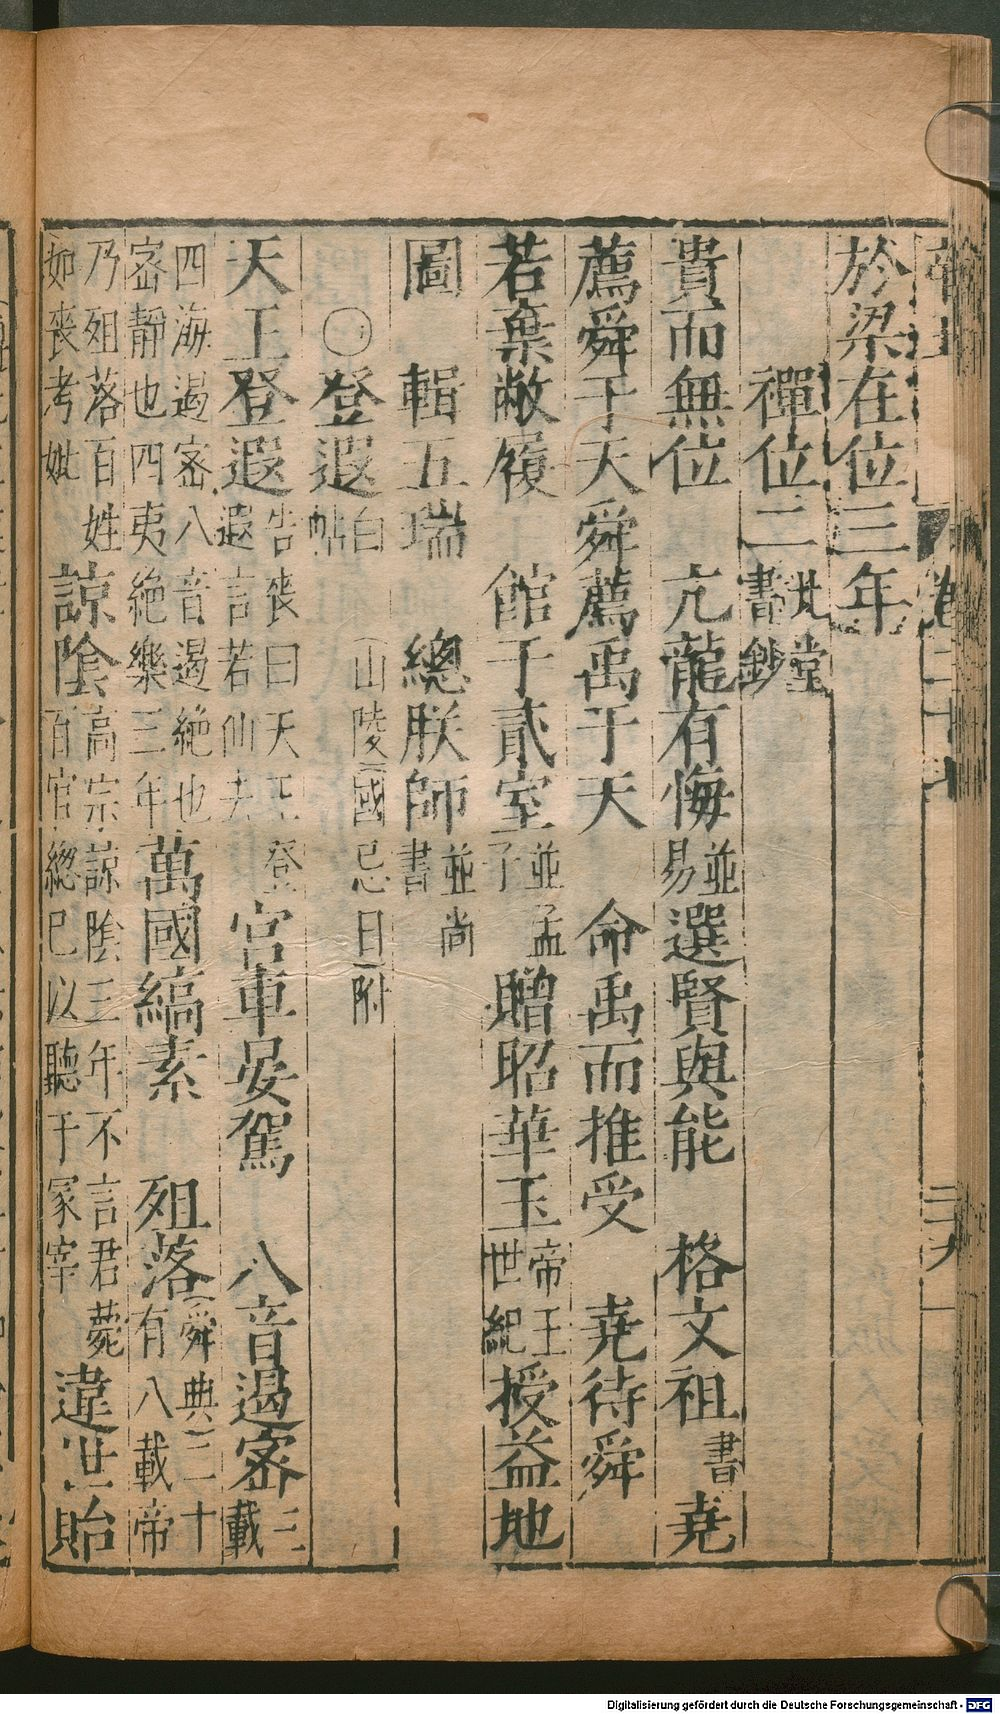 於梁在位三年
禪位二 北堂書鈔
貴而無位 亢龍有悔 並易 選賢與能 格文祖 書 堯
薦舜于天舜薦禹于天 命禹而推受 堯待舜
若棄敝屣 館于貳室 並孟子 贈昭華玉 帝王世紀 授益地
圖 輯五瑞 總朕師 並尚書
○登遐 白帖 (山陵)(國忌日)附
天王登遐 告喪曰天王登遐言若仙去 宮車晏駕 八音遏密 三載
四海遏密八音遏絶也密靜也四夷絶樂三年 萬國縞素 殂落 (舜典)二十有八載帝
乃殂落百姓如喪考妣 諒陰 高宗諒陰三年不言君薨百官總已以聽于冢宰 違世貽
二十九
Digitalisierung gefördert durch die Deutsche Forschungsgemeinschaft - DFG